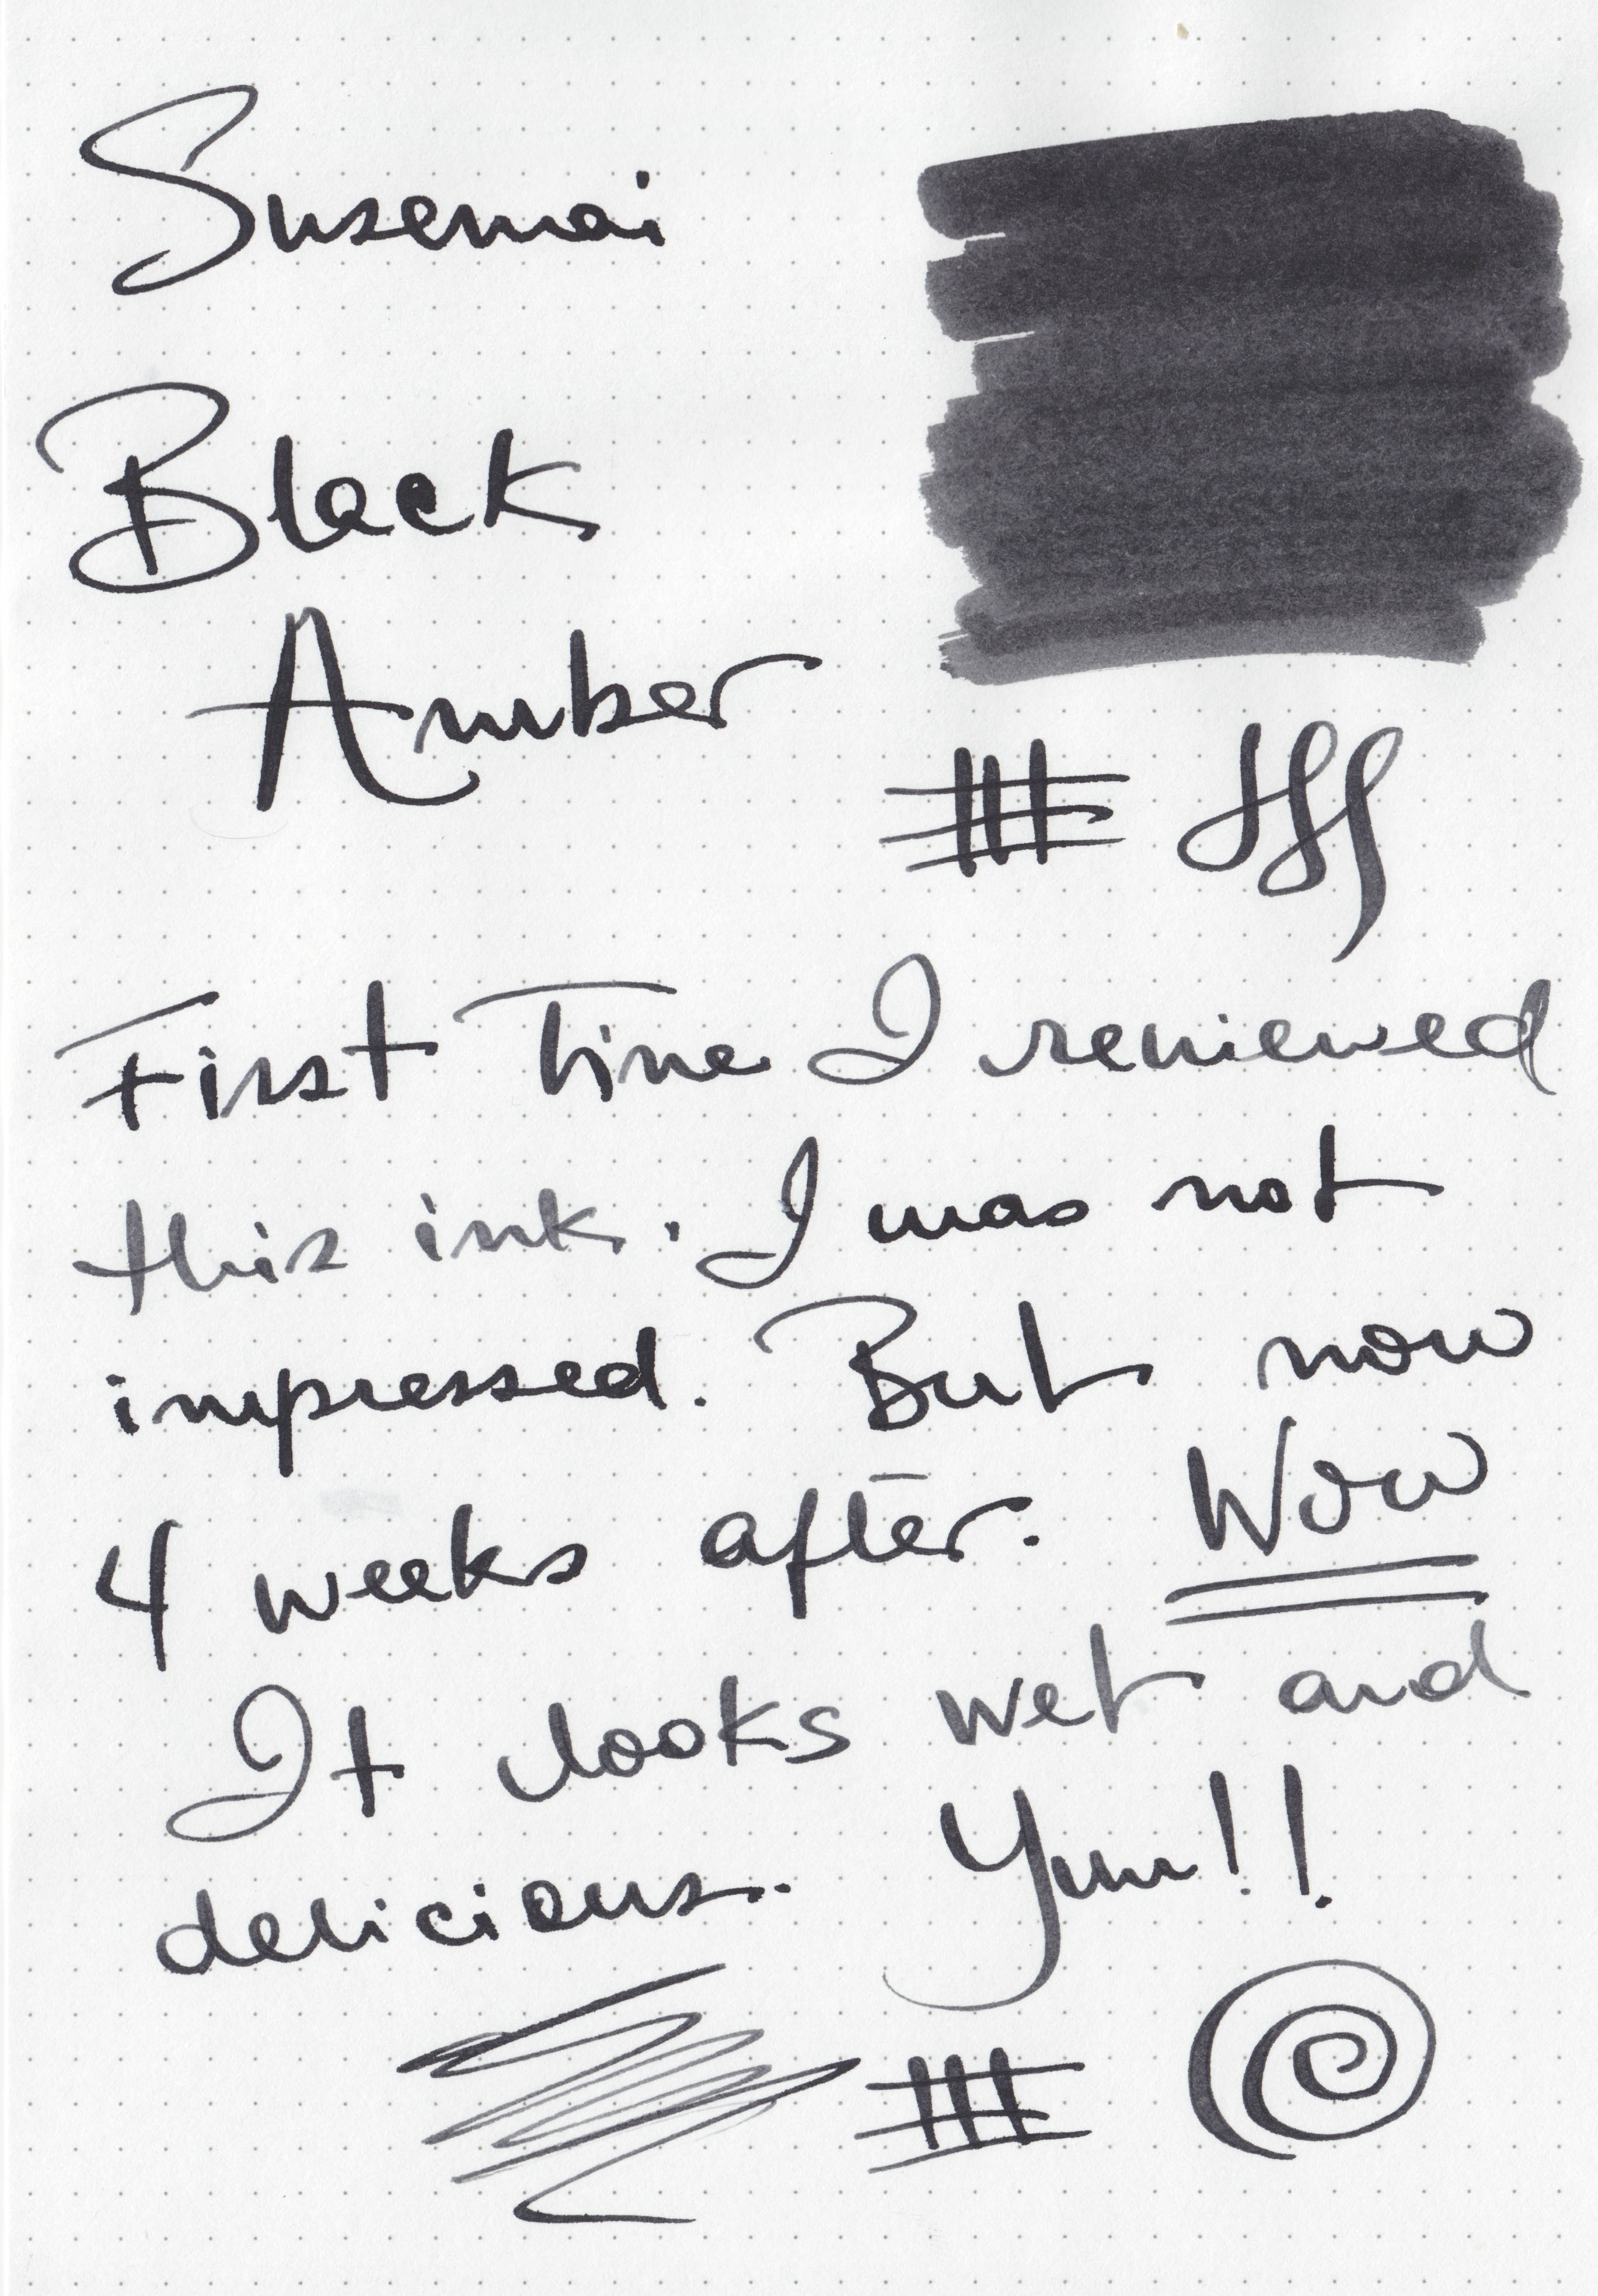 Susemai
Black
Amber
First Time I reviewed
this ink. I was not
impressed. But now
4 weeks after. Wow
It looks wet and
delicious. Yum!!